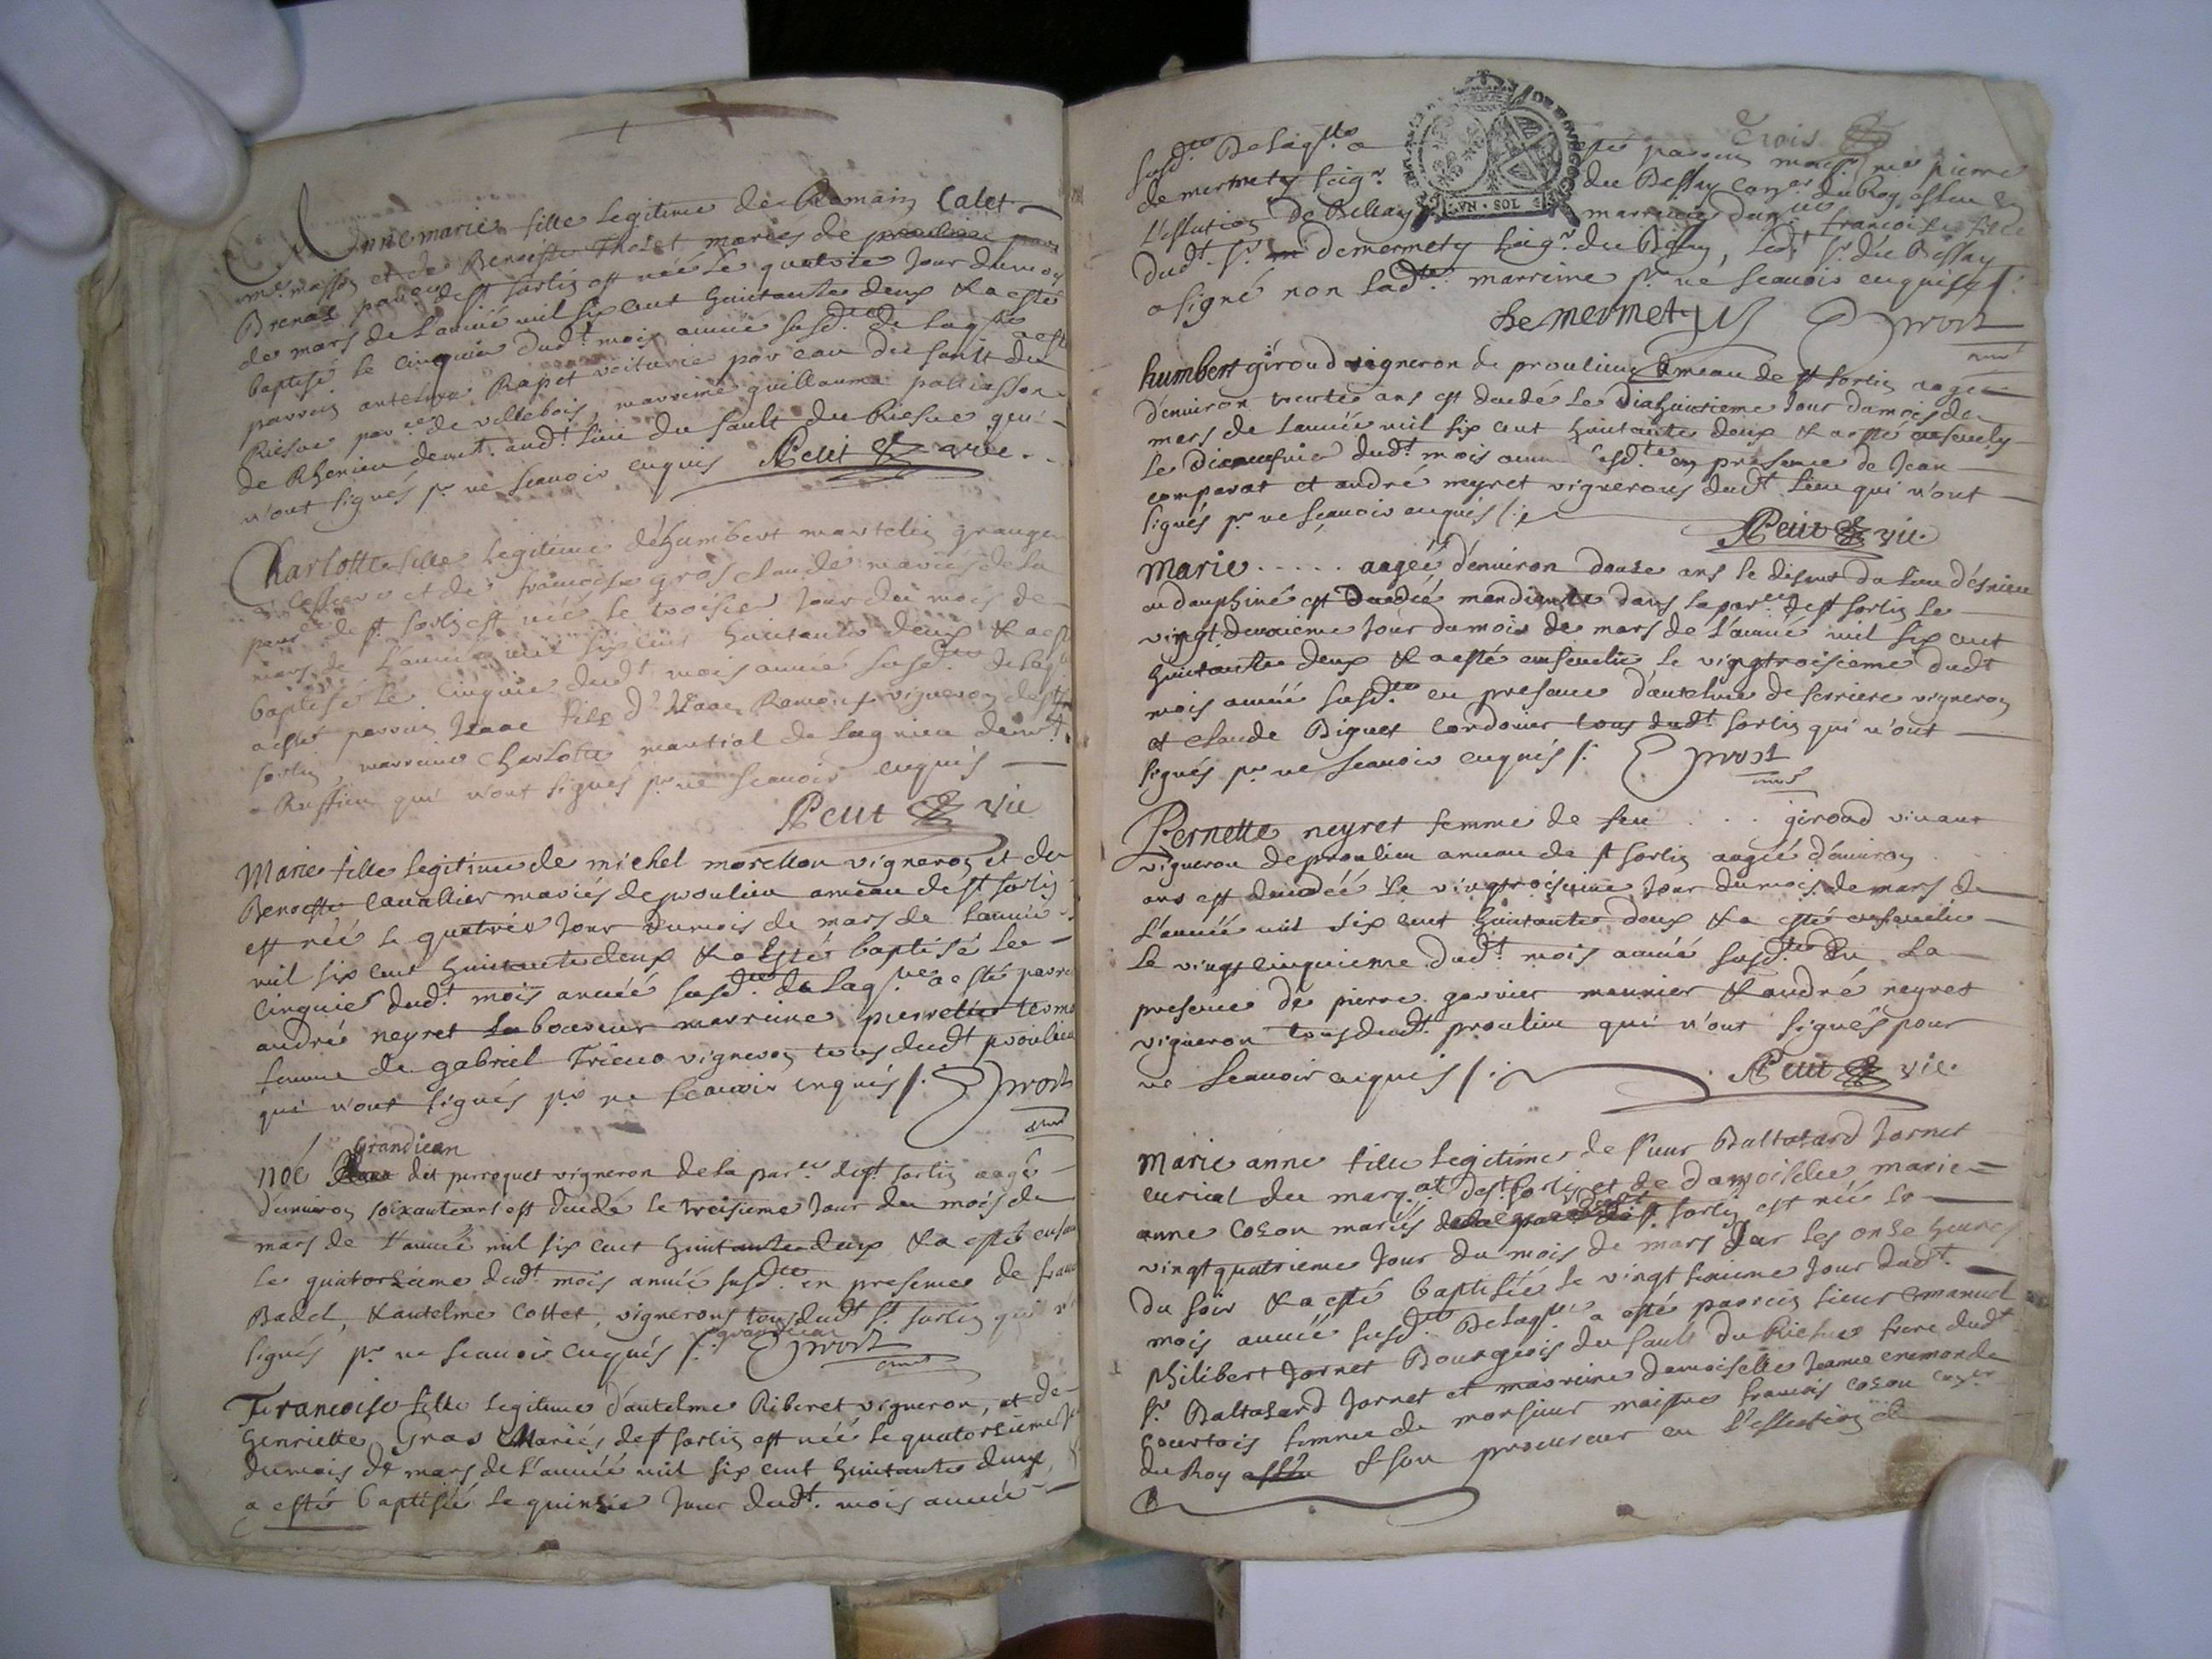 Anne marie fille legitime de Romain Calet
me masson et de Benoiste Thelet mariés de
Brenaz parce de st sortin est née le quatrie jour du mois
de mars de l'année mil six cent huictante deux & a esté
baptisé le cinquie dudt mois année susdte de laqlle a esté
parrin antelme Rapet voiturie par eau du sault du
Riesne parce de villebois, marreine guillauma
de Rhenieu demt audt lieu du sault du Riesne qui
n'ont signés pr ne scauoir enquis Petit vic
Charlotte fille legitime d'humbert martelin granger
et de francoise gros claude mariés de la
parce de st sortin est née le troisie jour du mois de
mars de l'année mil six cent huictante deux & a esté
baptisé le cinquie dudt mois année susdte de laqlle
a esté parrin Izaac fils d'Izaac Ramoux vigneron de st
sortin, marreine Charlotte martial de lagnieu demt
a Ruffieu qui n'ont signés pr ne scauoir enquis
Petit vic
Marie fille legitime de michel morellon vigneron et de
Benoiste Cauallier mariés de proulieu ameau de st sortin
est née le quatrie jour du mois de mars de l'année
mil six cent huictante deux & a Esté baptisé le
cinquie dudt mois année susdte de laqlle a esté parrin
andré neyret laboureur marreine pierrette
femme de gabriel Trieuo vigneron tous dudt proulieu
qui n'ont signés pr ne scauoir enquis /. Prost
Grandiean
Noé dit perroquet vigneron de la parce de st sortin aagé
d'enuiron soixante ans est décedé le treisieme jour du mois de
mars de l'année mil six cent huictante deux & a esté
le quatorsieme dudt mois année susdte en presence de
Badel, & antelme Cottet, vignerons tous dudt st sortin qui
signés pr ne scauoir enquis /. Prost
grandiean
Francoise fille legitime d'antelme Riberet vigneron, et de
henriette Gras Mariés de st sortin est née le quatorsieme
du mois de mars de l'année mil six cent huictante deux
a esté baptisée le quinsie jour dudt. mois année
Trois
susdte De laqlle a esté parrin messe me pierre
de mermety seigr du Bessey Conser du Roy esleu en
l'eslection de Bellay marreine damlle francoise fille
dudt. sr demermety seigr. du Bessey, ledt sr du Bessey
a signé non ladte marreine pr ne scauoir enquise /.
De mermety Prost
humbert giroud vigneron de proulieu ameau de st sortin aagé
d'enuiron trente ans est décedé le dixhuictieme jour du mois de
mars de l'année mil six cent huictante deux & a esté enseuely
le dixneufuie dudt mois année susdte en presence de Jean
comparat et andré neyret vignerons dudt lieu qui n'ont
signés pr ne scauoir enquis /.
Petit vic.
Marie ..... aagée d'enuiron douse ans se disant du lieu
en dauphiné est décedée mandiante dans la parce de st sortin le
vingt deuxieme jour du mois de mars de l'année mil six cent
huictante deux & a esté enseuelie le vingtroisieme dudt
mois année susdte en presence d'antelme de ferriere vigneron
et claude Biguet Cordonier tous dudt sortin qui n'ont
signés pr ne scauoir enquis /. Prost
Pernette neyret femme de feu . . . giroud viuant
vigneron de proulieu ameau de st sortin aagée d'enuiron
ans est décedée le vingtroisieme jour du mois de mars de
l'année mil six cent huictante deux & a esté enseuelie
le vingtcinquieme dudt mois année susdte En La
presence de pierre garnier meunier & andré neyret
vigneron tous dudt. proulieu qui n'ont signés pour
ne scauoir enquis /.
Petit vic.
Marie anne fille legitime de sieur Baltasard Jornet
curial du marqat de st sortin et de damoiselle marie
anne Coson mariés dudt st sortin est née le
vingtquatrieme jour du mois de mars sur les onse heures
du soir & a esté baptisée le vingt sixieme jour dudt.
mois année susdte De laqlle a esté parrin sieur Emanuel
philibert Jornet Bourgeois du sault du Riesne frere dudt
sr Baltasard Jornet et marreine damoiselle Jeanne enemonde
Courtois femme de monsieur maistre francois Coson Conser
du Roy & son procureur en l'eslection de
B
VN · SOL